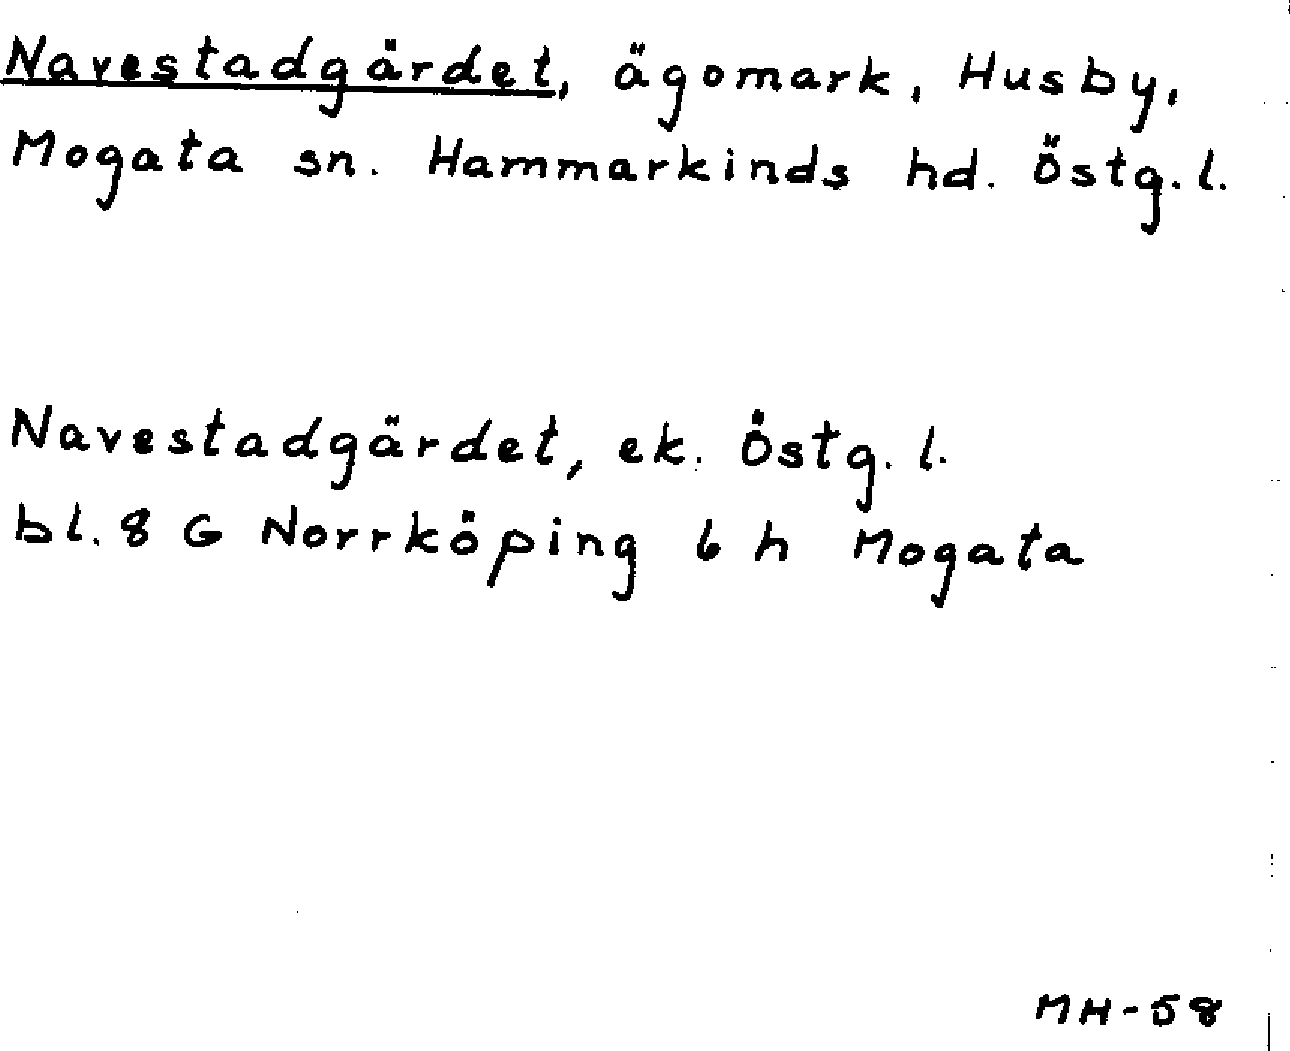 Navestadgärdet, ägomark, Husby,
Mogata sn. Hammarkinds hd. Östg. l.
Navestadgärdet, ek. Östg. l.
bl. 8 G Norrköping 6 h Mogata
MH-58